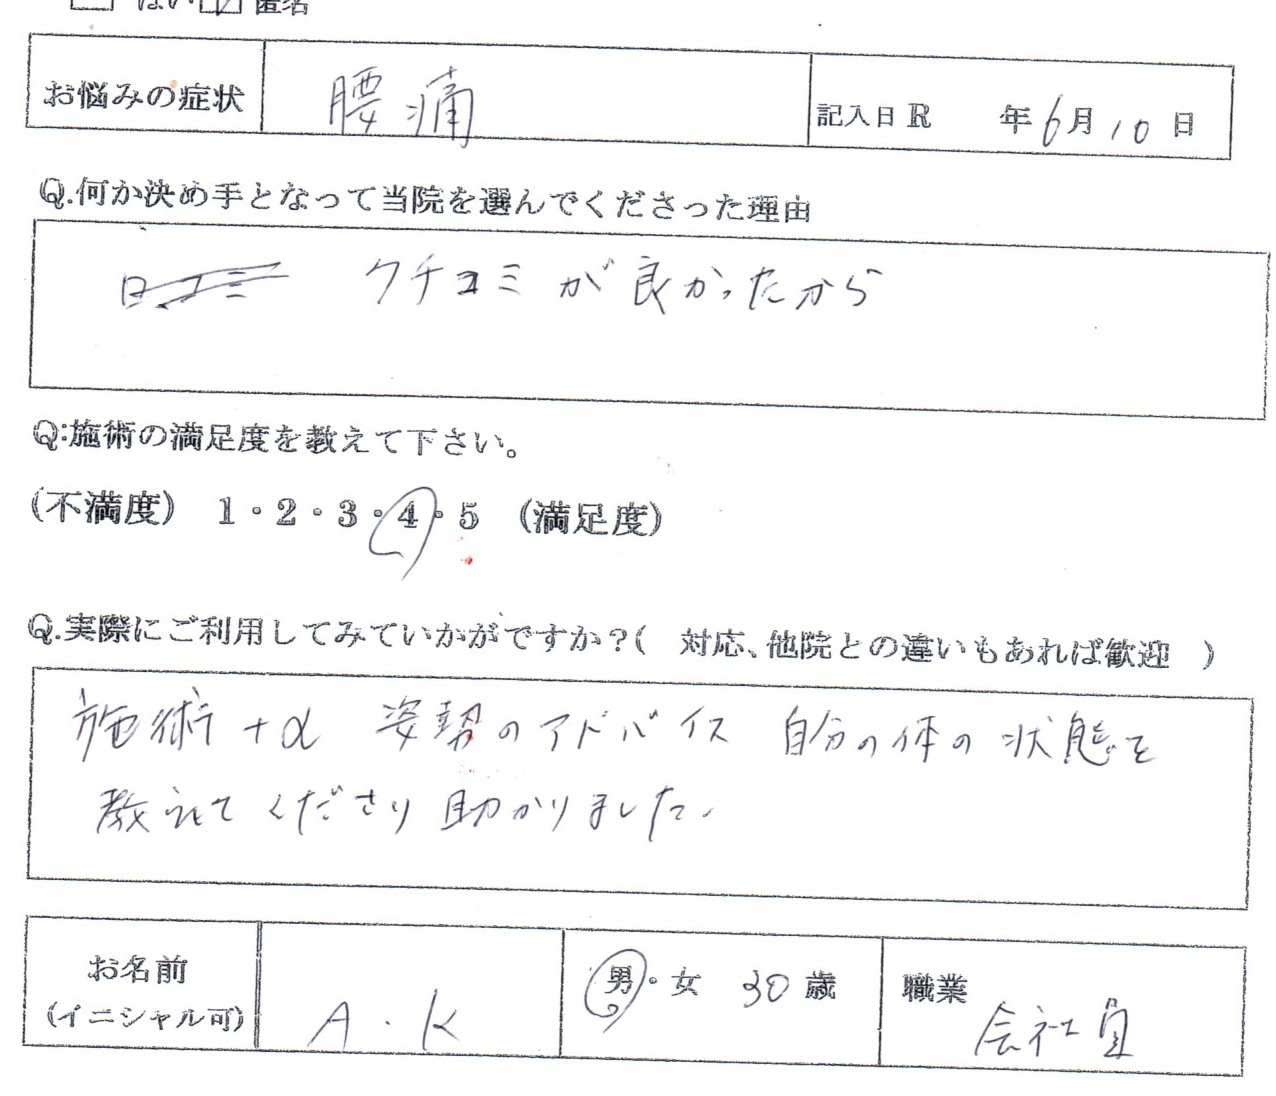 はい 匿名
お悩みの症状 腰痛 記入日 R 年 6月 10日
Q.何か決め手となって当院を選んでくださった理由
クチコミが良かったから
Q:施術の満足度を教えて下さい。
(不満度) 1・2・3・4・5 (満足度)
Q.実際にご利用してみていかがですか?( 対応、他院との違いもあれば歓迎 )
施術+α 姿勢のアドバイス 自分の体の状態を
教えてくださり助かりました。
お名前 A.K 男・女 30歳 職業
(イニシャル可) 会社員